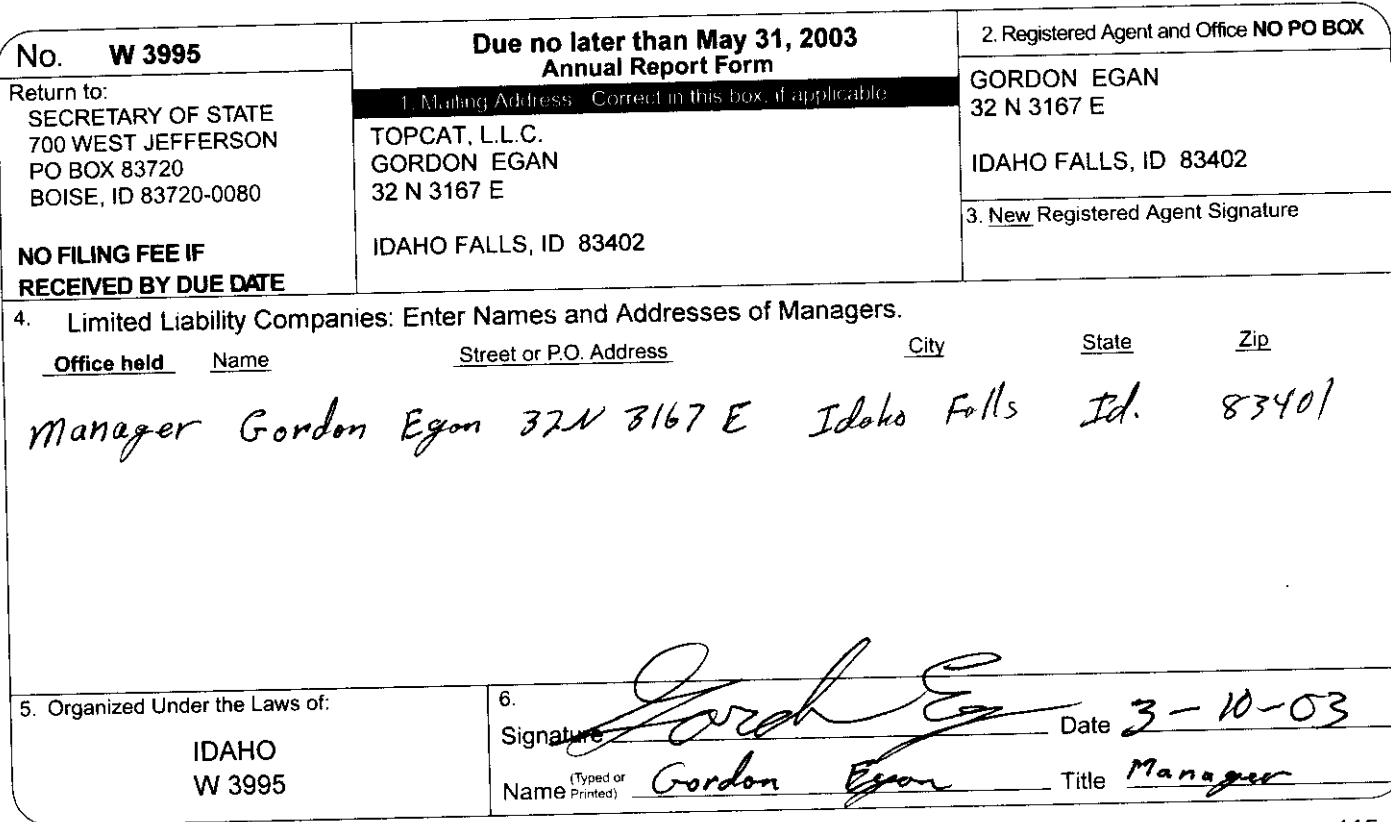 No. W 3995
Return to:
SECRETARY OF STATE
700 WEST JEFFERSON
PO BOX 83720
BOISE, ID 83720-0080
NO FILING FEE IF
RECEIVED BY DUE DATE
Due no later than May 31, 2003
Annual Report Form
1. Mailing Address Correct in this box, if applicable
TOPCAT, L.L.C.
GORDON EGAN
32 N 3167 E
IDAHO FALLS, ID 83402
2. Registered Agent and Office NO PO BOX
GORDON EGAN
32 N 3167 E
IDAHO FALLS, ID 83402
3. New Registered Agent Signature
4. Limited Liability Companies: Enter Names and Addresses of Managers.
Office held Name Street or P.O. Address City State Zip
Manager Gordon Egan 32N 3167 E Idaho Falls Id. 83401
5. Organized Under the Laws of:
IDAHO
W 3995
6.
Signature Gordon Egan Date 3-10-03
Name (Typed or Printed) Gordon Egan Title Manager